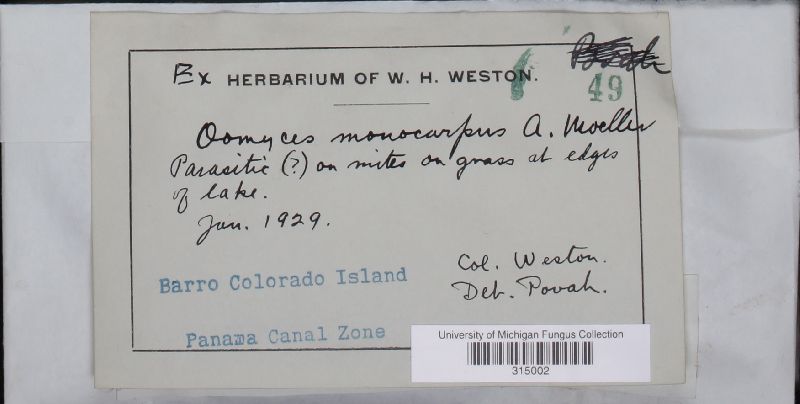 Ex HERBARIUM OF W. H. WESTON.
49
Oomyces monocarpus A. Moeller
Parasitic (?) on mites on grass at edges
of lake.
Jan. 1929.
Barro Colorado Island
Panama Canal Zone
Col. Weston.
Det. Povah.
University of Michigan Fungus Collection
315002